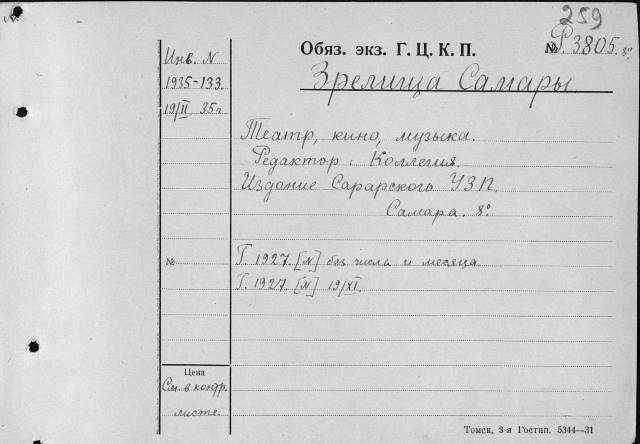 259
Обяз. экз. Г. Ц. К. П.
№ Р.3805. 8°.
Инв. N
1935-133.
19/II 35 г.
Зрелища Самары.
Театр, кино, музыка.
Редактор: Коллегия.
Издание Сарарского УЗП.
Самара. 8°.
№
Г. 1927. [N] без числа и месяца.
Г. 1927. [N] 19/XI.
Цена
См. в контр.
листе.
Томск, 3-я Гостип. 5344—31